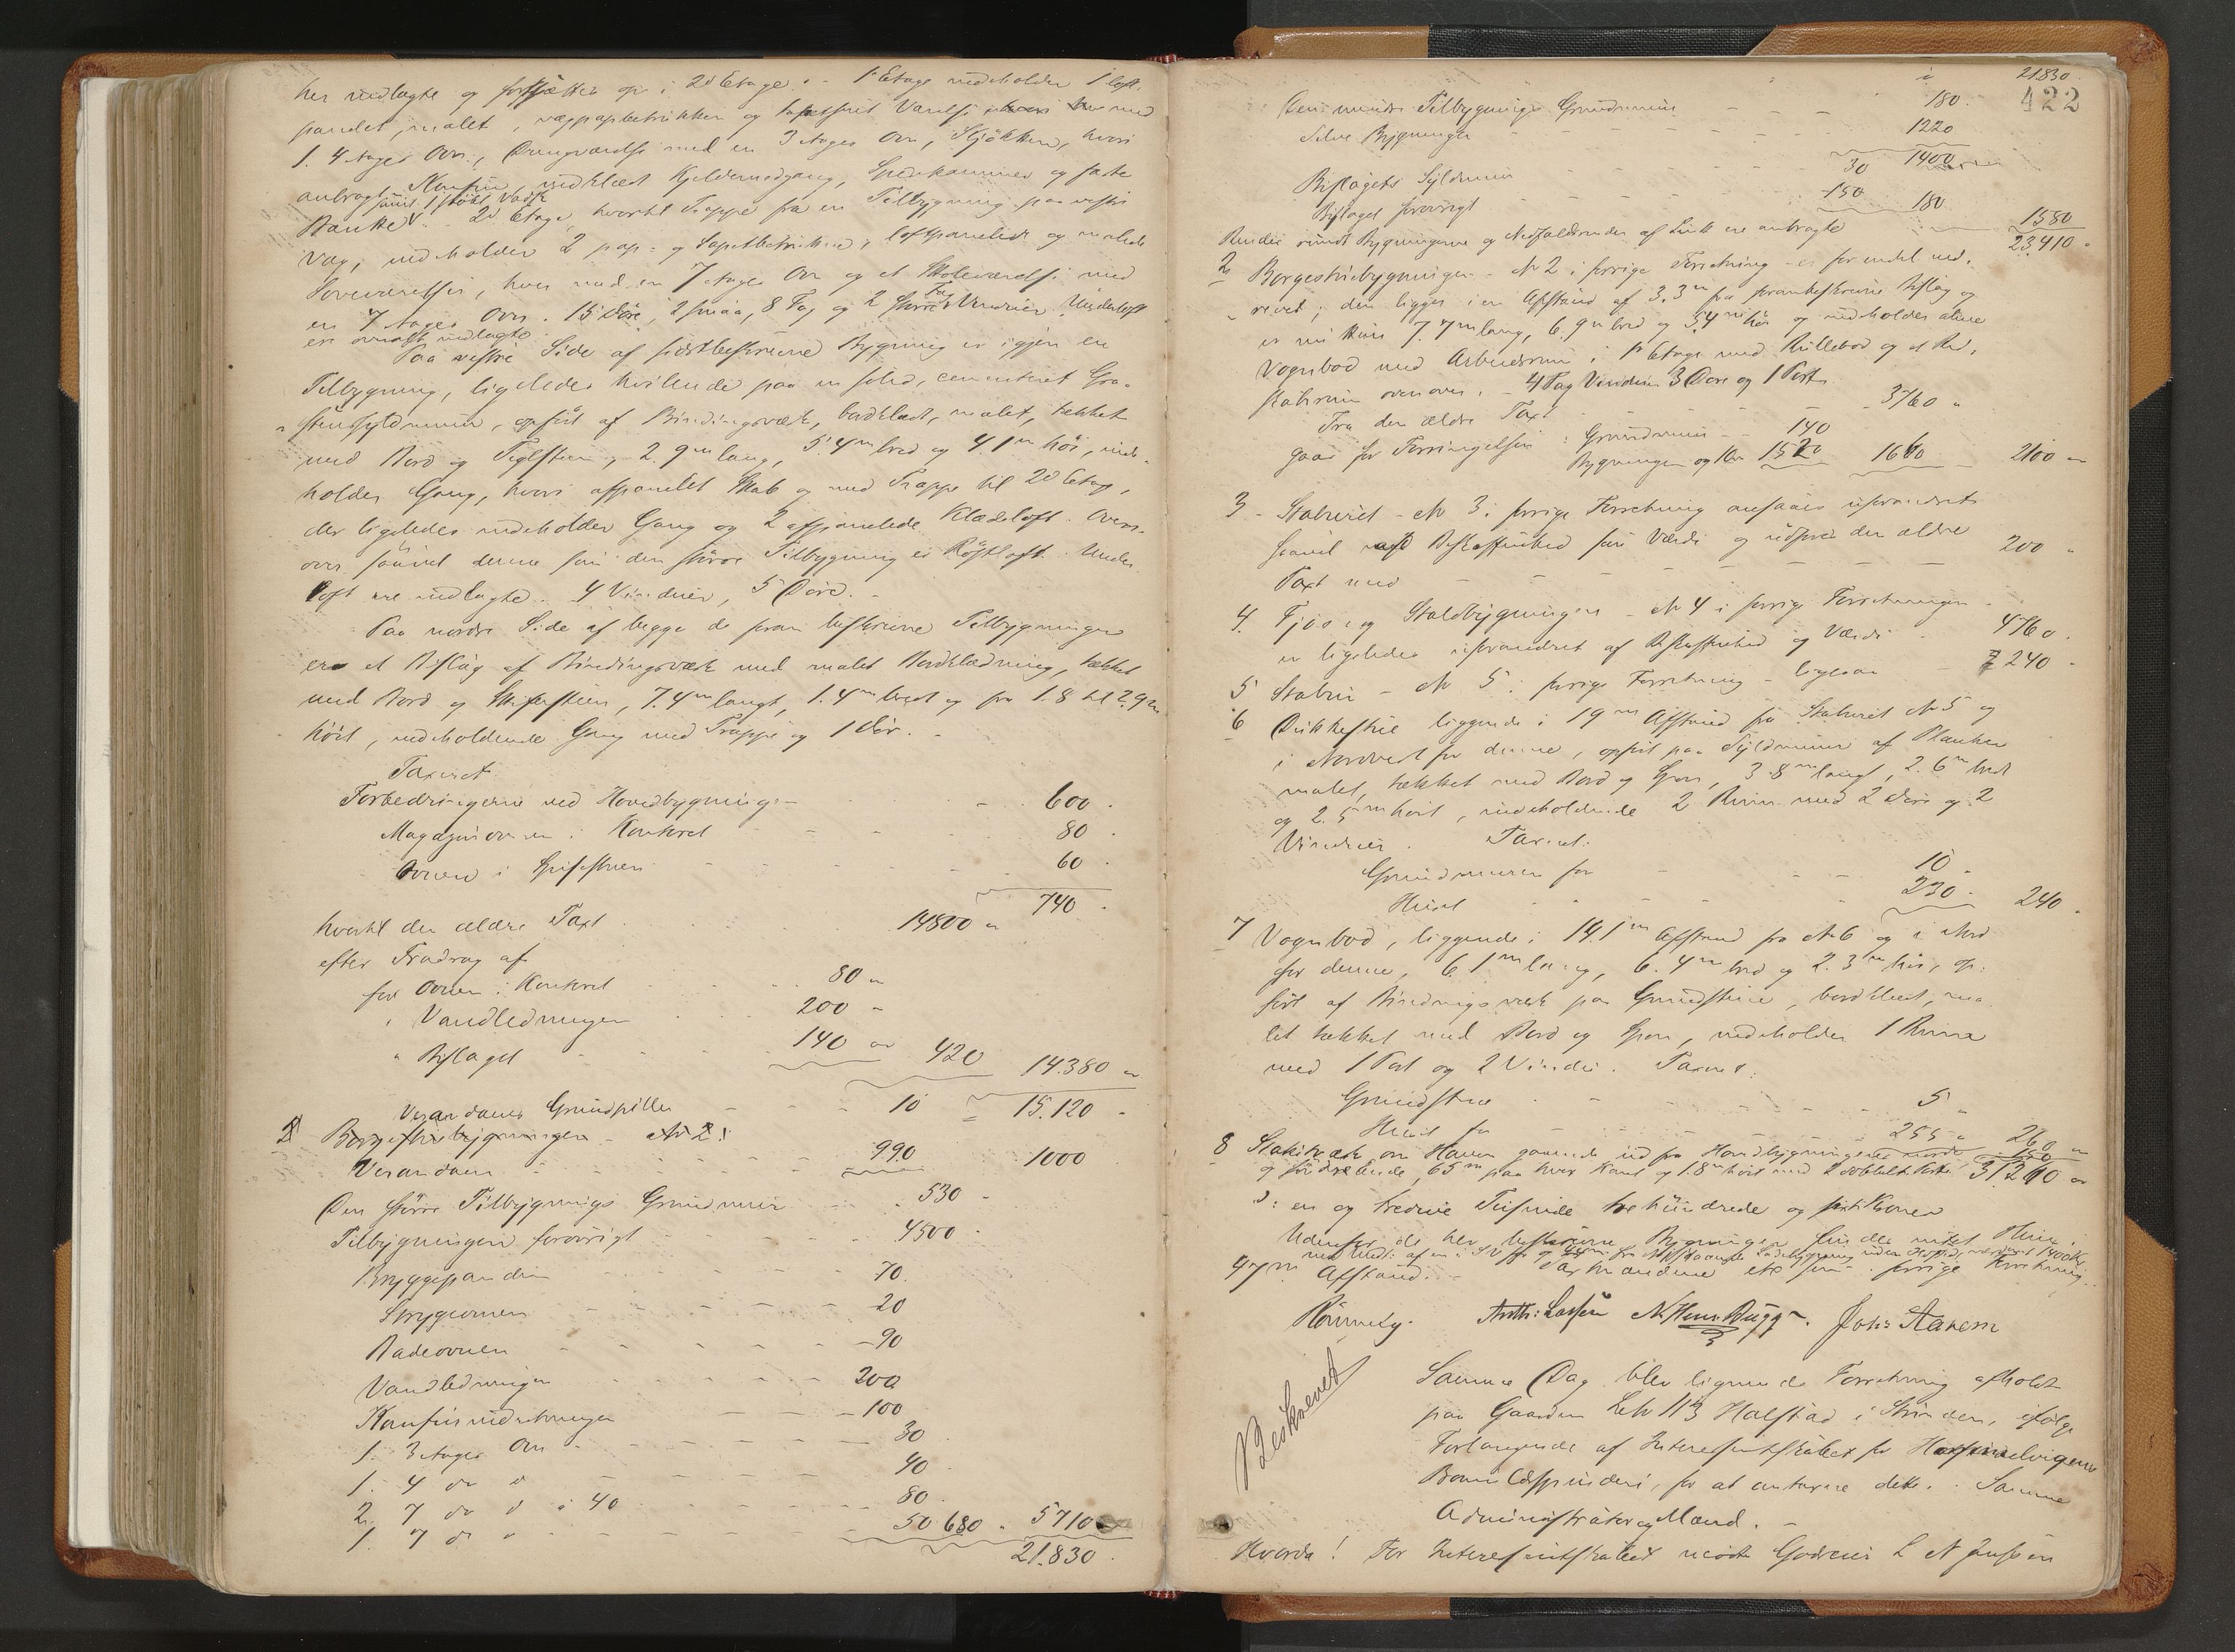 her indlagte og fortsætter op i 2d Etage. - 1 Etage indeholder 1 loft-
panelet, malet, væggapbetrukken og tapetseret Værelse hvori med
1. 4 Etages Ovn, Drengeværelse med en 3 Etages Ovn, Kjökken, hvori
anbragt Komfur, indklædt Kjeldernedgang, Spisekammer og faste
samt 1 stökt Vadsk
Bænke. - 2d Etage, hvortil Trappe fra en Tilbygning paa vestre
Væg, indeholder 2 pap- og tapetbetrukne, loftpanelede og malede
Soveværelser, hver med en 7 Etages Ovn og et Skoleværelse med
en 7 Etages Ovn. 15 Döre, 2 smaa, 8 Fag og 2 större Fag Vinduer. Underloft
er overalt indlagte.
Paa vestre Side af sidstbeskrevne Bygning er igjen en
Tilbygning, ligeledes hvilende paa en solid, cementeret Graa-
stensfyldmuur, opfört af Bindingsværk, bordklædt, malet, tækket
med Bord og Teglsteen, 2.9m lang, 5.4m bred og 4.1m höi, inde-
holder Gang, hvori afpanelet Skab og med Trappe til 2d Etage,
der ligeledes indeholder Gang og 2 afpanelede Klædeloft. Oven-
over saavel denne som den större Tilbygning er Röstloft. Under
loft ere indlagte. 4 Vinduer, 5 Döre. -
Paa nordre Side af begge de foran beskrevne Tilbygninger
er et Bislag af Bindingsværk med malet Bordklædning, tækket
med Bord og Skifersteen, 7.4m langt, 1.4m bredt og fra 1.8 til 2.9m
höit, indeholdende Gang med Trappe og 1 Dör. -
Taxeret
Forbedringerne ved Hovedbygningen - 600.
Magazinovnen i Kontoret 80.
Ovnen i Spisestuen 60.
740.
hvortil den ældre Taxt 14800 "
efter Fradrag af
for Ovnen i Kontoret 80 "
" Vandledningen 200 "
" Bislaget 140 " 420 14.380 "
15.120 "
Verandaens Grundpiller 10
2 Borgestuebygningen - No 2 i
Verandaen 990 1000
Den större Tilbygnings Grundmuur 530 -
Tilbygningen forövrigt 4500 -
Bryggepanden 70.
Strygeovnen 20
Badeovnen 90
Vandledningen 200
Komfurindretningen 100
1. 3 Etages Ovn 30
1. 4 do d 40
2. 7 do d à 40 80
1. 7 do d 50 680 " 5710
21.830.
422
21.830.
Den mindre Tilbygnings Grundmuur 180.
Selve Bygningen 1220
1400
Bislagets Syldmuur 30
Bislaget forövrigt 150 180
1580
Render rundt Bygningerne og Nedfaldsrender af Zink ere anbragte
23.410 "
2 Borgestuebygningen - No 2 i forrige Forretning - er for endel ned-
revet; den ligger i en Afstand af 3.3m fra foranbeskrevne Bislag og
er nu kun 7.7m lang, 6.9m bred og 5.4m höi og indeholder alene
Vognbod med Arbeidsrum i 1e Etage med Rullebod og et Red-
skabrum ovenover. - 4 Fag Vinduer 3 Döre og 1 Port.
Fra den ældre Taxt 3760 "
gaar for Forringelsen: Grundmuur 140
Bygningen og Ovn 1520 1660 2100 "
3 - Stabburet - No 3 i forrige Forretning ansaaes uforandret
saavel af Beskaffenhed som Værdi og udföres den ældre
Taxt med 200 "
4. Fjös- og Staldbygningen - No 4 i forrige Forretning -
er ligeledes uforandret af Beskaffenhed og Værdi 4760.
5 Stabur - No 5 i forrige Forretning - ligesaa 240 -
6 Dukkestue liggende i 19m Afstand fra Staburet No 5 og
i Nordvest for denne, opfört paa Syldmuur af Planker
malet, tækket med Bord og Spon, 3.8m langt, 2.6m bredt
og 2.5m höit, indeholdende 2 Rum med 2 Döre og 2
Vinduer. Taxeret:
Grundmuren for 10 -
Huset 230 - 240 "
7 Vognbod, liggende i 14.1m Afstand fra No 6 og i Nord
for denne, 6.1m lang, 6.4m bred og 2.3m höi, op-
fört af Bindingsværk paa Grundstene, bordklædt, ma-
let tækket med Bord og Spon, indeholder 1 Rum
med 1 Port og 2 Vinduer. Taxeret:
Grundstene 5 "
Huset for 255 " 260 "
8 Stakitværk om Haven gaaende ud fra Hovedbygningens nordre
og söndre Ende, 65m paa hver Kant og 1.8m höit med 2 dobbelte Porte 150
31260 "
ɔ: en og tredive Tusinde to hundrede og sexti Kroner
Udenfor de her beskrevne Bygninger findes intet Huus i
47m Afstand. - Taxtmændene etc som i forrige Forretning.
Rönneberg. Anth: Lassen N. Henr. Bugge. Johs Aanesen
Beskrevet
Samme Dag blev lignende Forretning afholdt
paa Gaarden Lehr 113 Halstad i Strinden, ifölge
Forlangende af Interessentskabet for
Bomuldsspinderi, for at antagne dette. Samme
Administrator og Mænd. -
Hvorda! For Interessentskabet mödte Godseier L N Jenssen